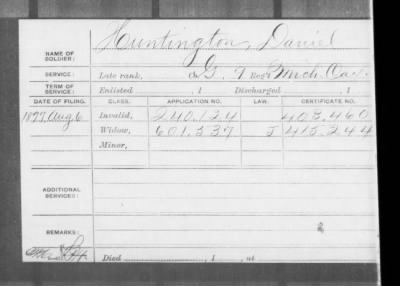 Huntington, Daniel
NAME OF SOLDIER:
SERVICE: Late rank, G, 9 Reg't Mich. Cav.
TERM OF SERVICE: Enlisted , 1 Discharged , 1
DATE OF FILING. CLASS. APPLICATION NO. LAW. CERTIFICATE NO.
1877, Aug. 6 Invalid, 240.124 403.460
Widow, 601.337 J 415.244
Minor,
ADDITIONAL SERVICES:
REMARKS:
Died , 1 , at